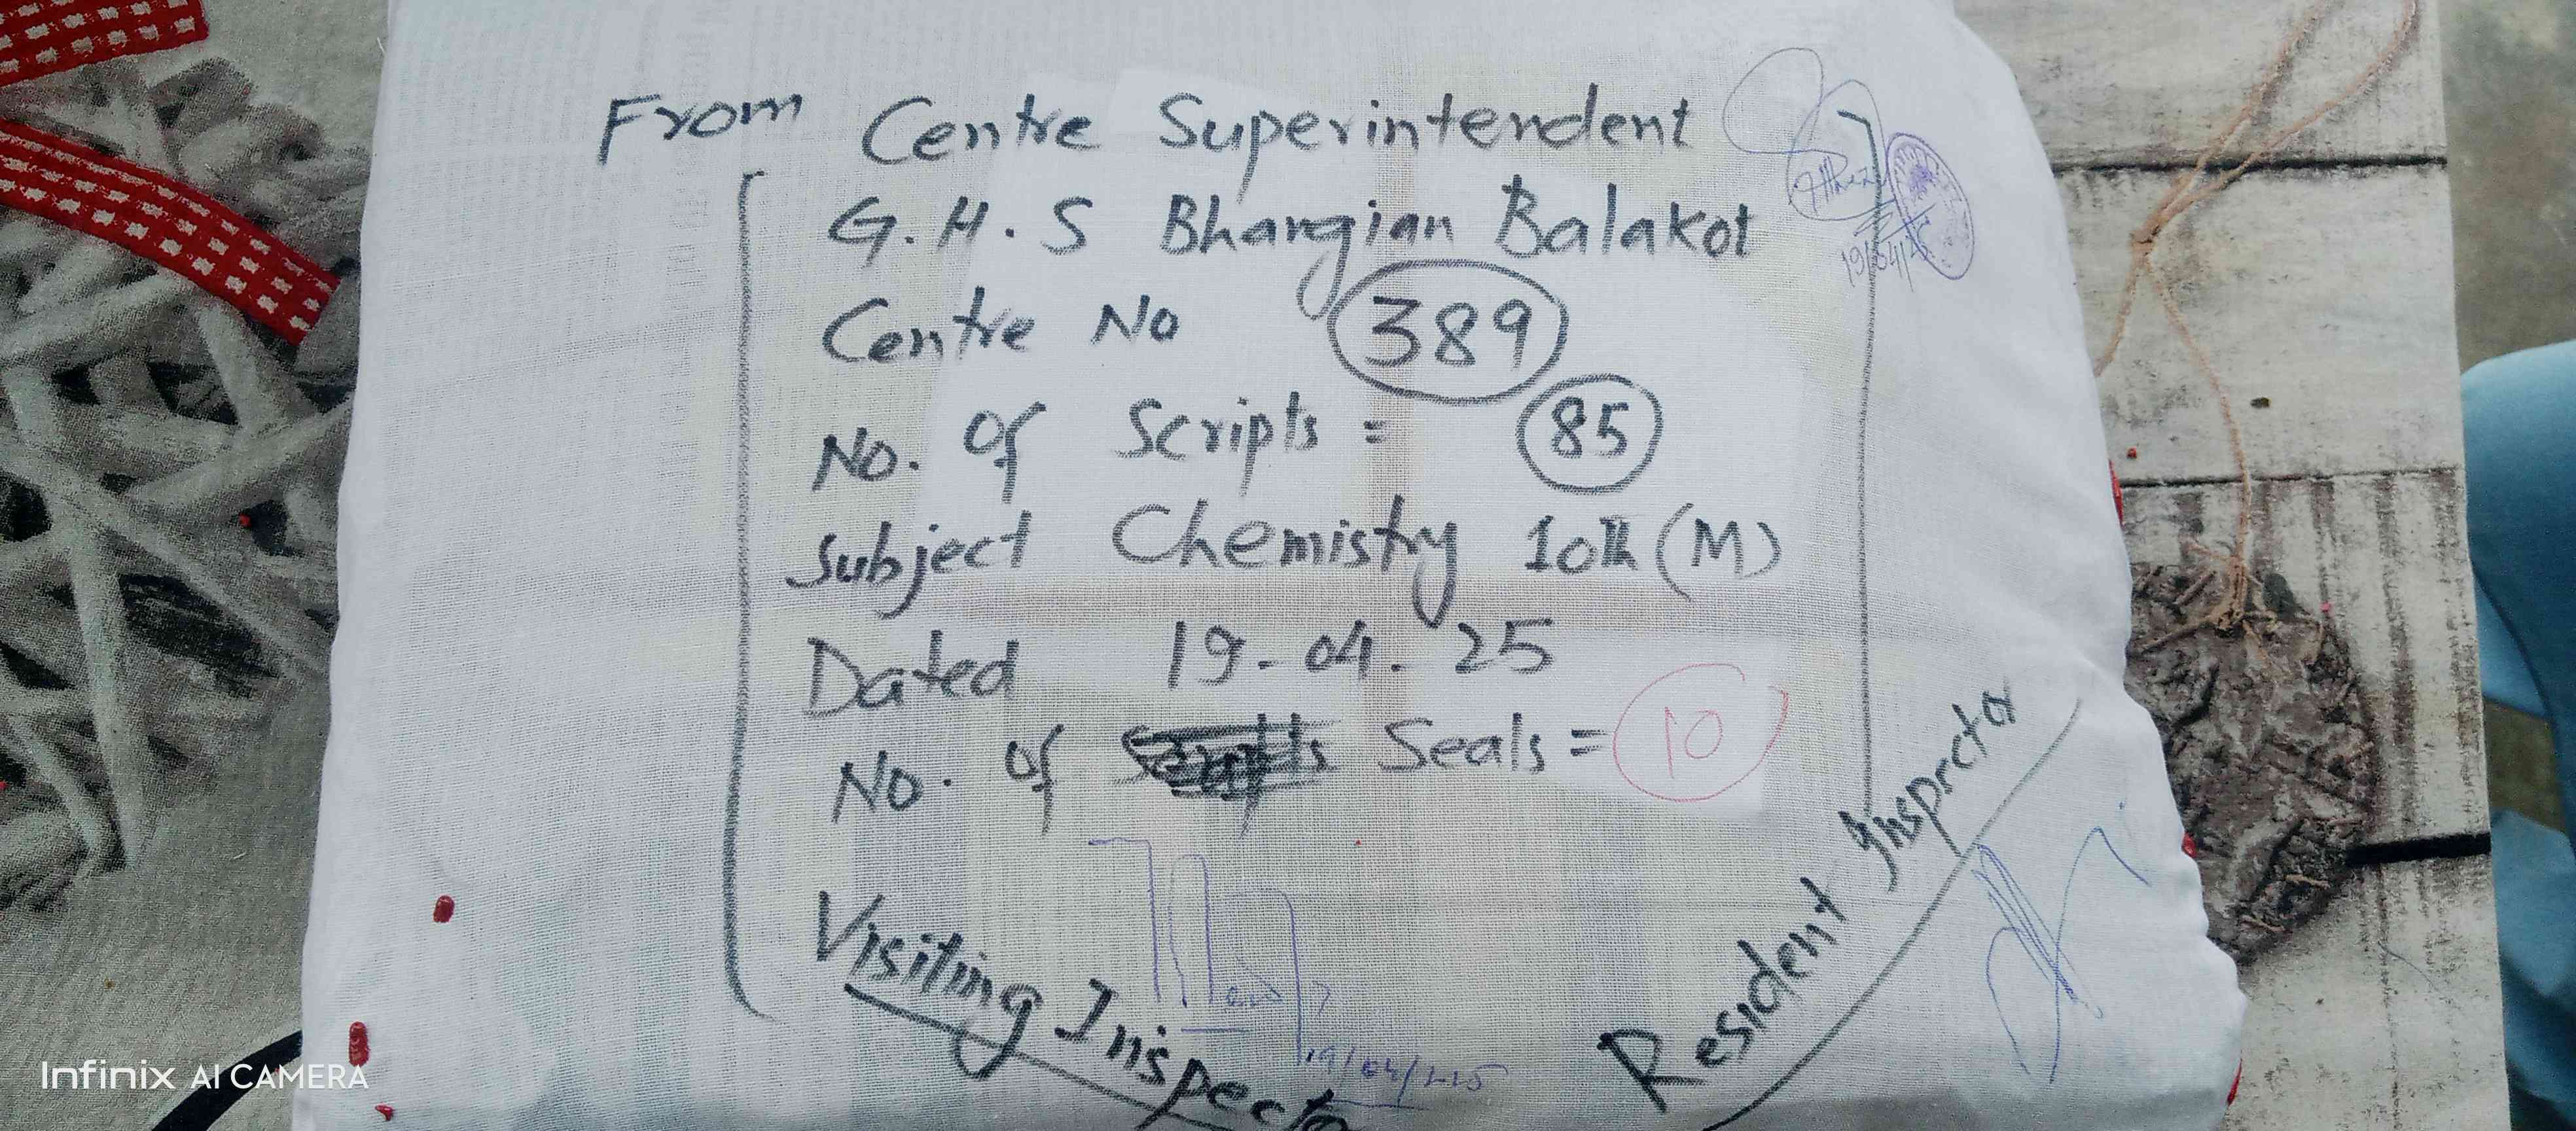 From Centre Superintendent
G.H.S Bhangian Balakot
Centre No 389
No. of Scripts = 85
Subject Chemistry 10th (M)
Dated 19-04-25
No. of Seals = 10
Visiting Inspecto
19/04/25
Resident Inspector
19/04/25
Infinix AI CAMERA